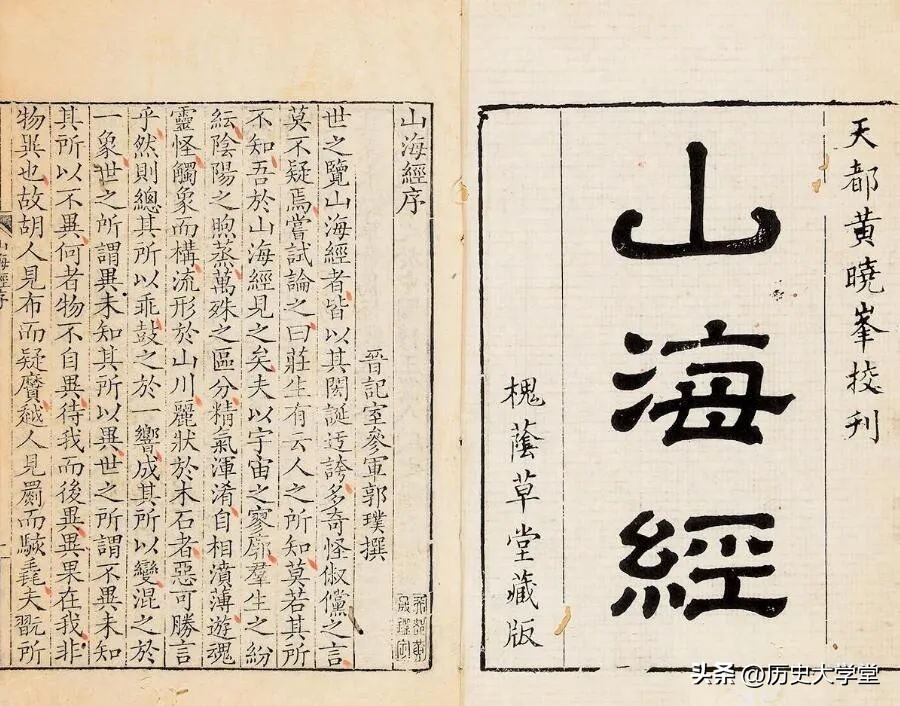 天都黄曉峯挍刋
山海經
槐蔭草堂藏版
山海經序
晉記室參軍郭璞撰
世之覽山海經者皆以其閎誕迃誇多奇怪俶儻之言
莫不疑焉嘗試論之曰莊生有云人之所知莫若其所
不知吾於山海經見之矣夫以宇宙之寥廓羣生之紛
紜陰陽之煦蒸萬殊之區分精氣渾淆自相濆薄遊魂
靈怪觸象而構流形於山川麗狀於木石者惡可勝言
乎然則總其所以乖鼓之於一響成其所以變混之於
一象世之所謂異未知其所以異世之所謂不異未知
其所以不異何者物不自異待我而後異異果在我非
物異也故胡人見布而疑黂越人見罽而駭毳夫翫所
山海經序
头条 @历史大学堂